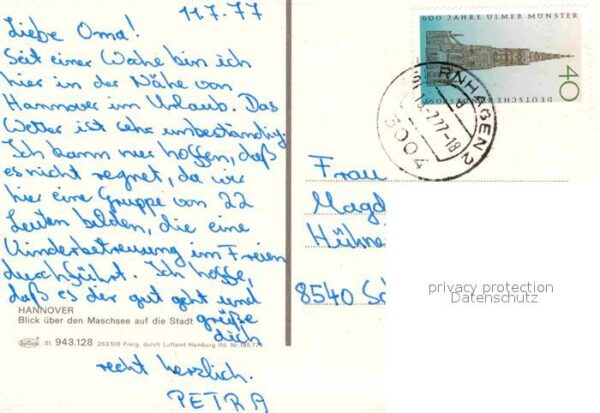 11.7.77
Liebe Oma!
Seit einer Woche bin ich
hier in der Nähe von
Hannover im Urlaub. Das
Wetter ist sehr unbeständig.
Ich kann nur hoffen, daß
es nicht regnet, da wir
hier eine Gruppe von 22
Leuten bilden, die eine
Kinderbetreuung im Freien
durchführt. Ich hoffe,
daß es dir gut geht und
grüße
dich
recht herzlich.
PETRA
HANNOVER
Blick über den Maschsee auf die Stadt
31. 943.128 263516 Freig. durch Luftamt Hamburg lfd. Nr.
600 JAHRE ULMER MÜNSTER
40
DEUTSCHE BUNDESPOST
RNHAGEN 2
7.77-18
3004
Frau
Magd
Hühne
8540 Sc
privacy protection
Datenschutz